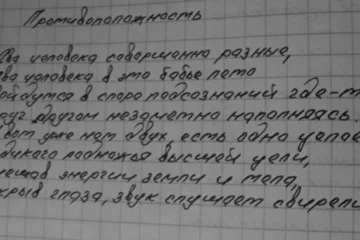 Противоположность
Два человека совершенно разные,
два человека в это бабье лето
сойдутся в споре подсознаний где-т
друг другом незаметно наполняясь.
вот уже нет двух, есть одно целое
подножья высшей цели,
энергии земли и тела,
закрыв глаза, звук слушает свирели